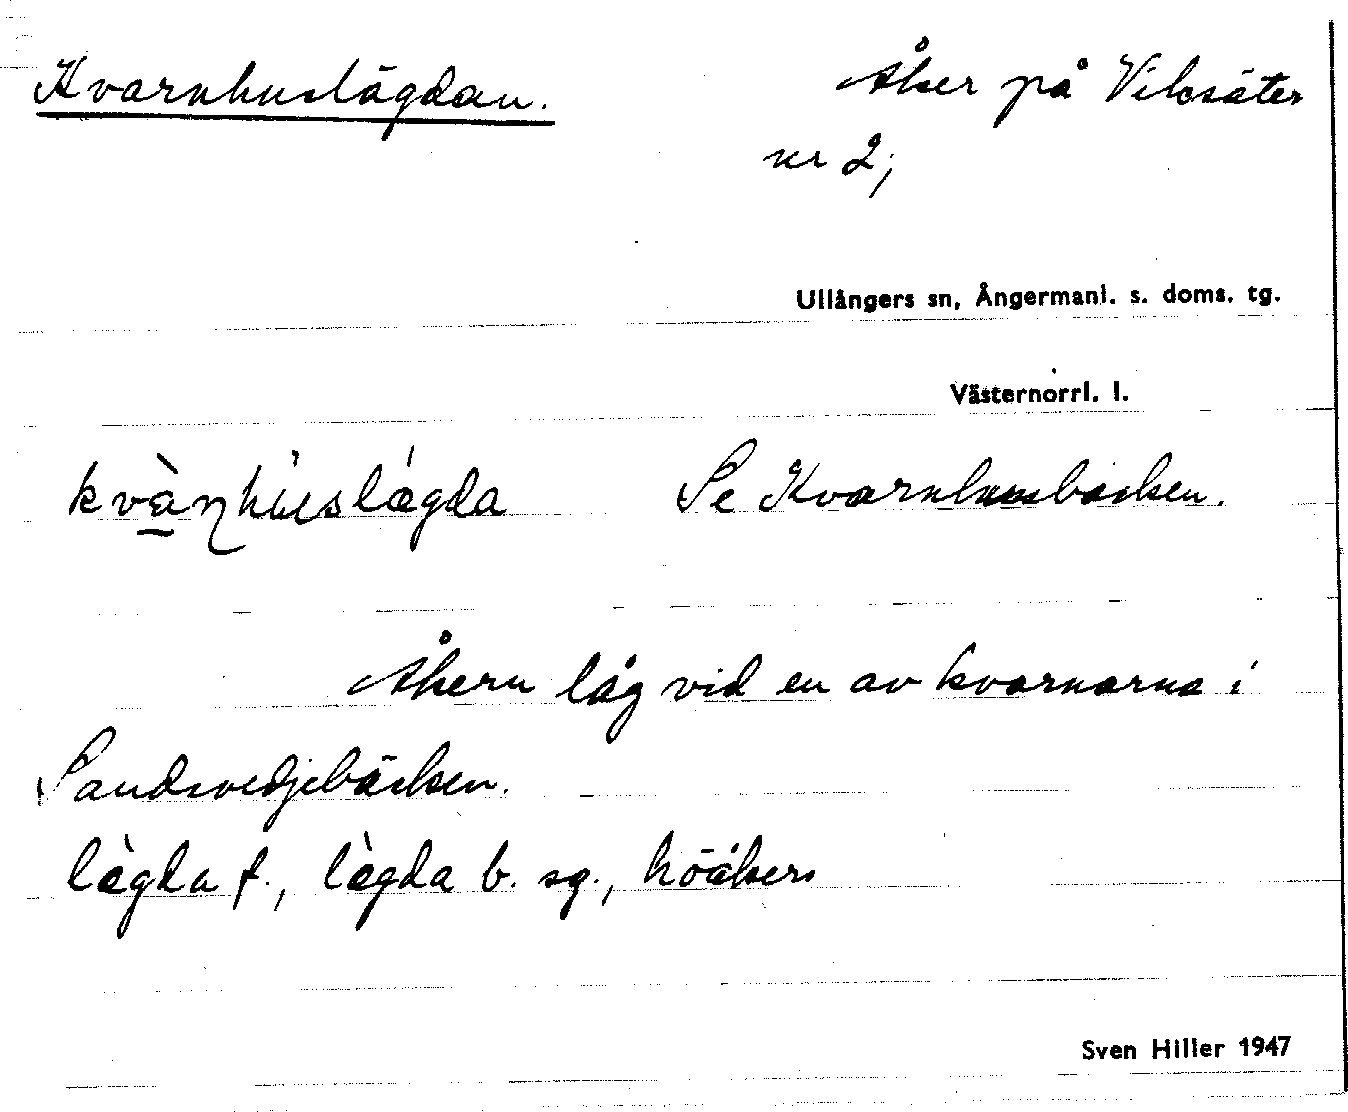 Kvarnhuslägdan.
Åker på Vibsäter
nr 2;
Ullångers sn, Ångermanl. s. doms. tg.
Västernorrl. l.
kvàɳhùslǽgda Se Kvarnhusbacken.
Åkern låg vid en av kvarnarna i
Sandsvedjebäcken.
lægda f., lægda b. sg., höåker
Sven Hiller 1947